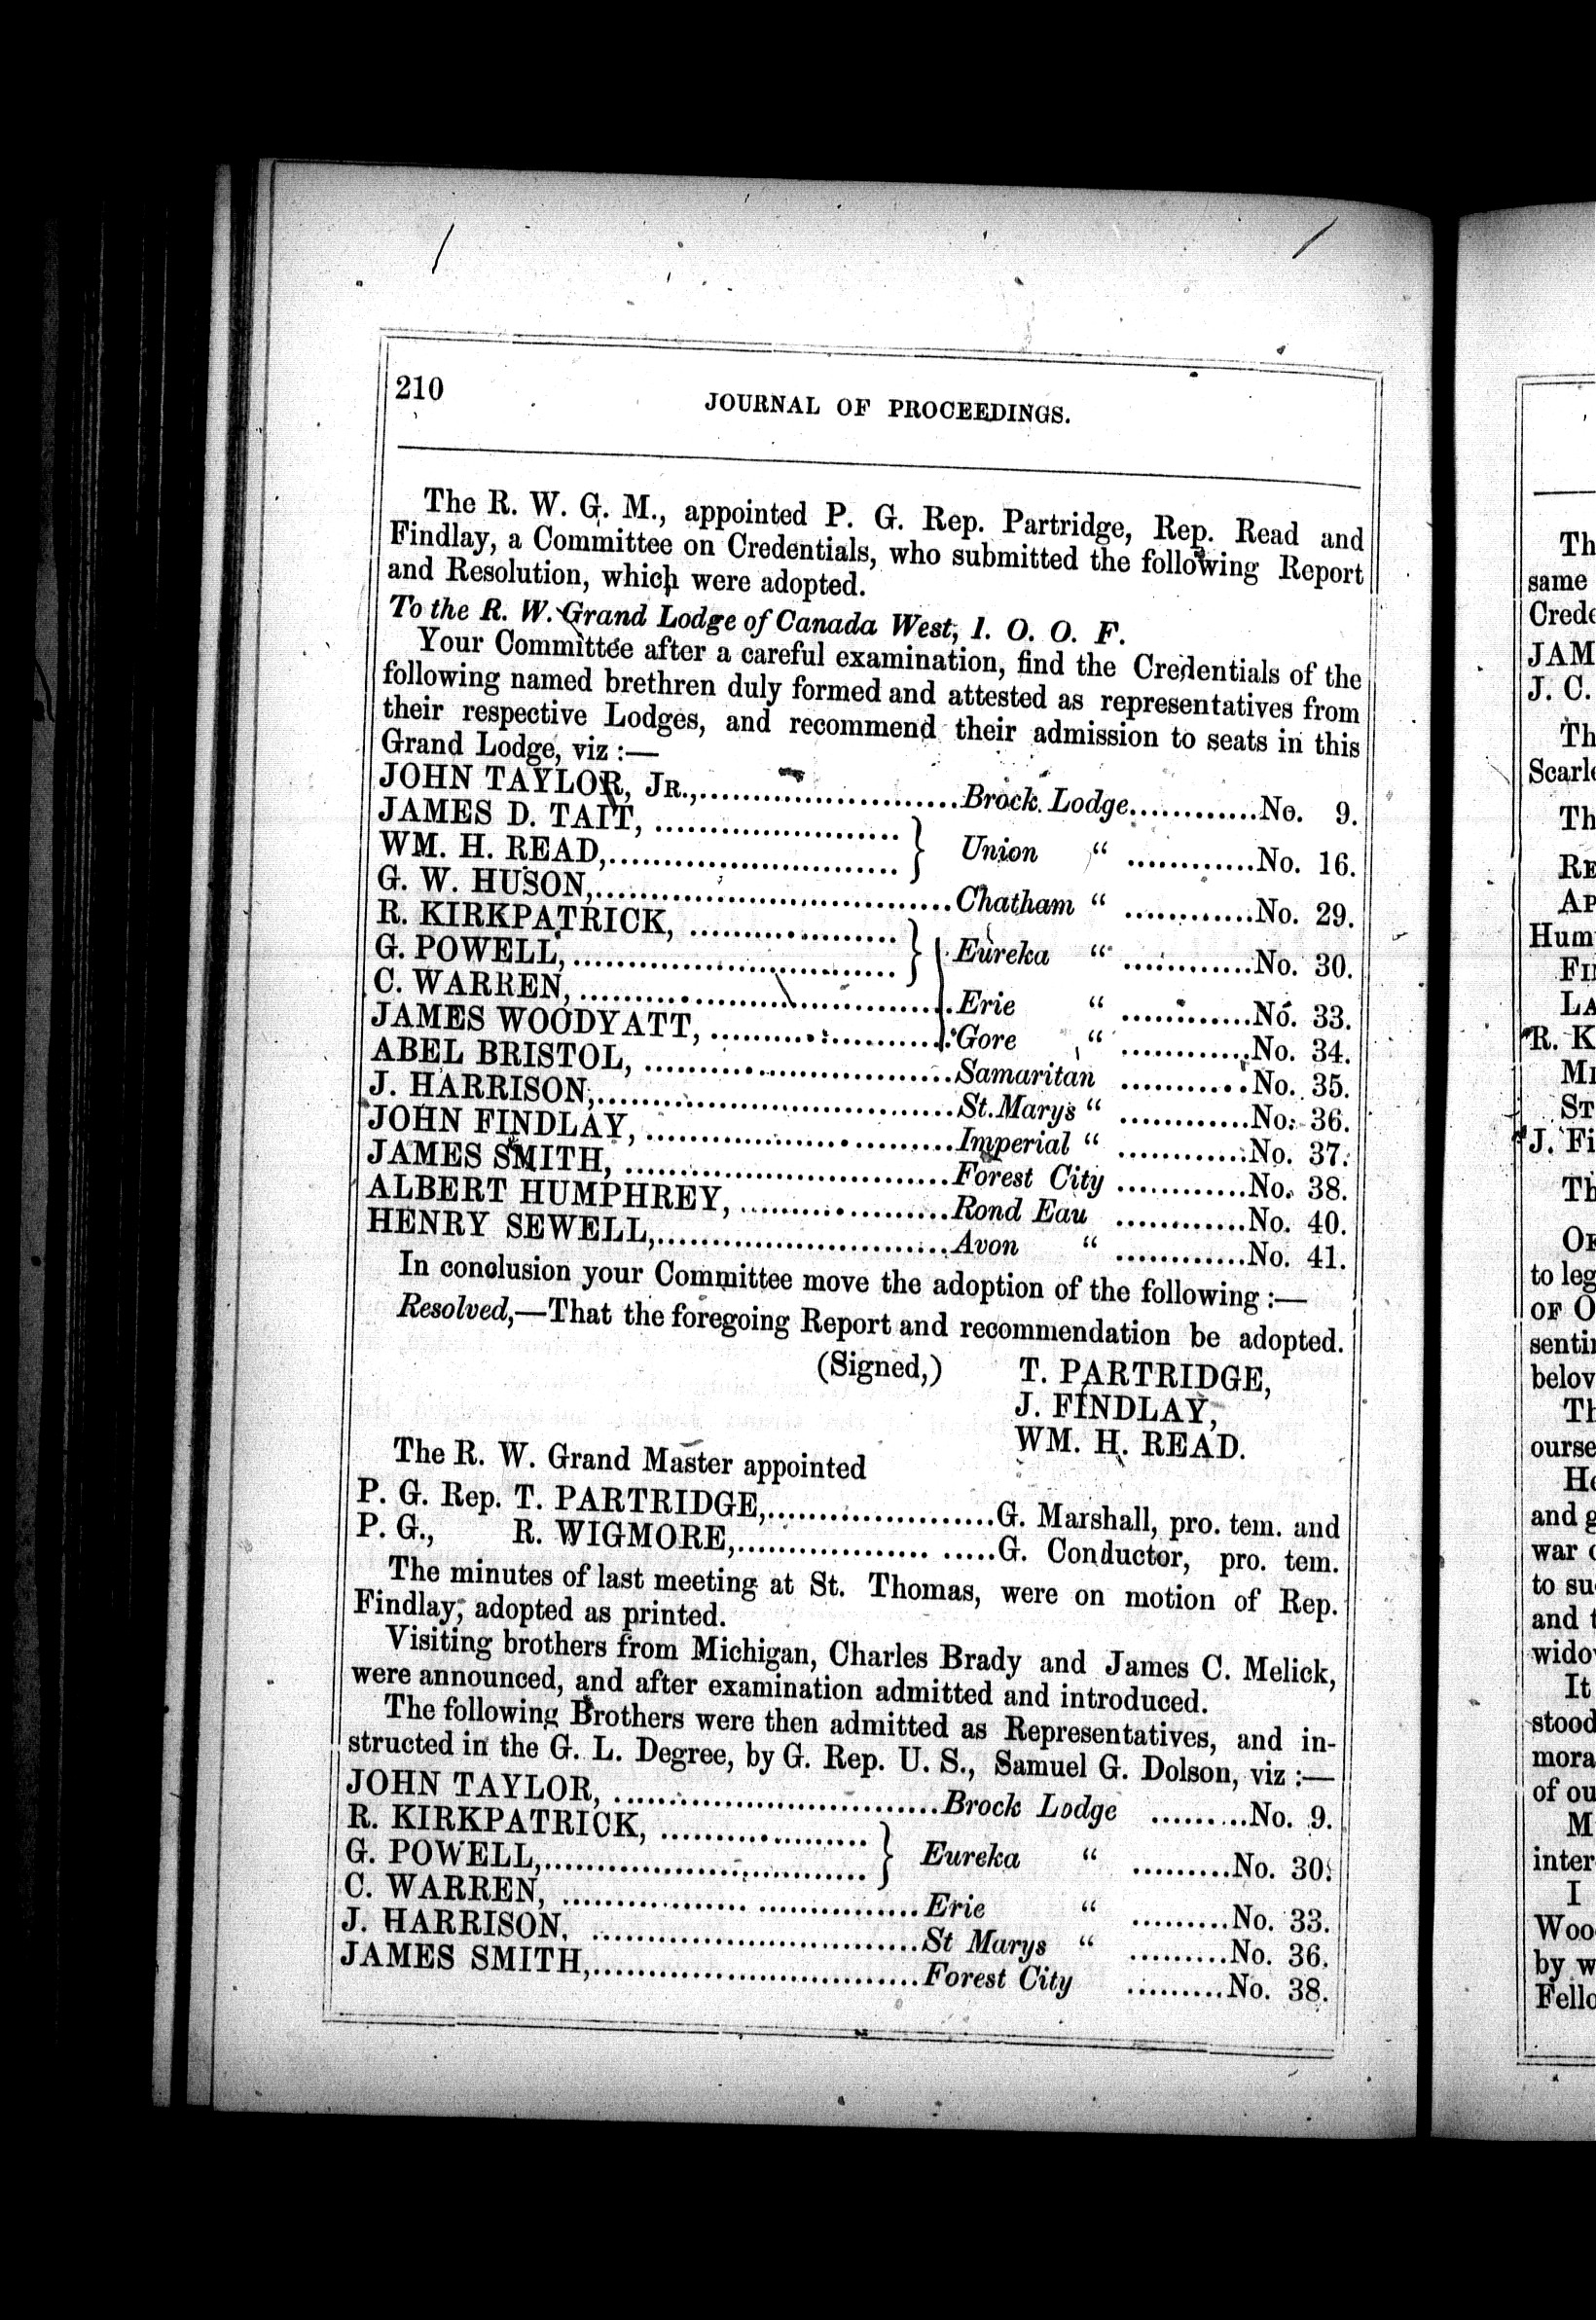 210
JOURNAL OF PROCEEDINGS.
The R. W. G. M., appointed P. G. Rep. Partridge, Rep. Read and
Findlay, a Committee on Credentials, who submitted the following Report
and Resolution, which were adopted.
To the R. W. Grand Lodge of Canada West, I. O. O. F.
Your Committee after a careful examination, find the Credentials of the
following named brethren duly formed and attested as representatives from
their respective Lodges, and recommend their admission to seats in this
Grand Lodge, viz :—
JOHN TAYLOR, JR.,........................Brock Lodge............No. 9.
JAMES D. TAIT, ......................
WM. H. READ,.......................... } Union “ ............No. 16.
G. W. HUSON,................................Chatham “ ............No. 29.
R. KIRKPATRICK, ...................
G. POWELL,............................. } Eureka “ ............No. 30.
C. WARREN, .................................Erie “ ............No. 33.
JAMES WOODYATT, ......................Gore “ ............No. 34.
ABEL BRISTOL, ............................Samaritan ............No. 35.
J. HARRISON,................................St. Marys “ ............No. 36.
JOHN FINDLAY, ............................Imperial “ ............No. 37.
JAMES SMITH, .............................Forest City ............No. 38.
ALBERT HUMPHREY, ...................Rond Eau ............No. 40.
HENRY SEWELL,..........................Avon “ ............No. 41.
In conclusion your Committee move the adoption of the following :—
Resolved,—That the foregoing Report and recommendation be adopted.
(Signed,) T. PARTRIDGE,
J. FINDLAY,
WM. H. READ.
The R. W. Grand Master appointed
P. G. Rep. T. PARTRIDGE,.....................G. Marshall, pro. tem. and
P. G., R. WIGMORE,.................. .....G. Conductor, pro. tem.
The minutes of last meeting at St. Thomas, were on motion of Rep.
Findlay, adopted as printed.
Visiting brothers from Michigan, Charles Brady and James C. Melick,
were announced, and after examination admitted and introduced.
The following Brothers were then admitted as Representatives, and in-
structed in the G. L. Degree, by G. Rep. U. S., Samuel G. Dolson, viz :—
JOHN TAYLOR, ..............................Brock Lodge .........No. 9.
R. KIRKPATRICK, ...................
G. POWELL,.............................. } Eureka “ .........No. 30.
C. WARREN, ................. ...............Erie “ .........No. 33.
J. HARRISON, ..............................St Marys “ .........No. 36.
JAMES SMITH,..............................Forest City .........No. 38.
Th
same
Crede
JAM
J. C.
Th
Scarle
Th
RE
AP
Hum
FI
LA
R. K
MI
ST
J. Fi
Th
to leg
OF O
senti
belov
Th
ourse
He
and g
war
to su
and
wido
It
stood
mora
of ou
M
inter
I
Woo
by w
Fello